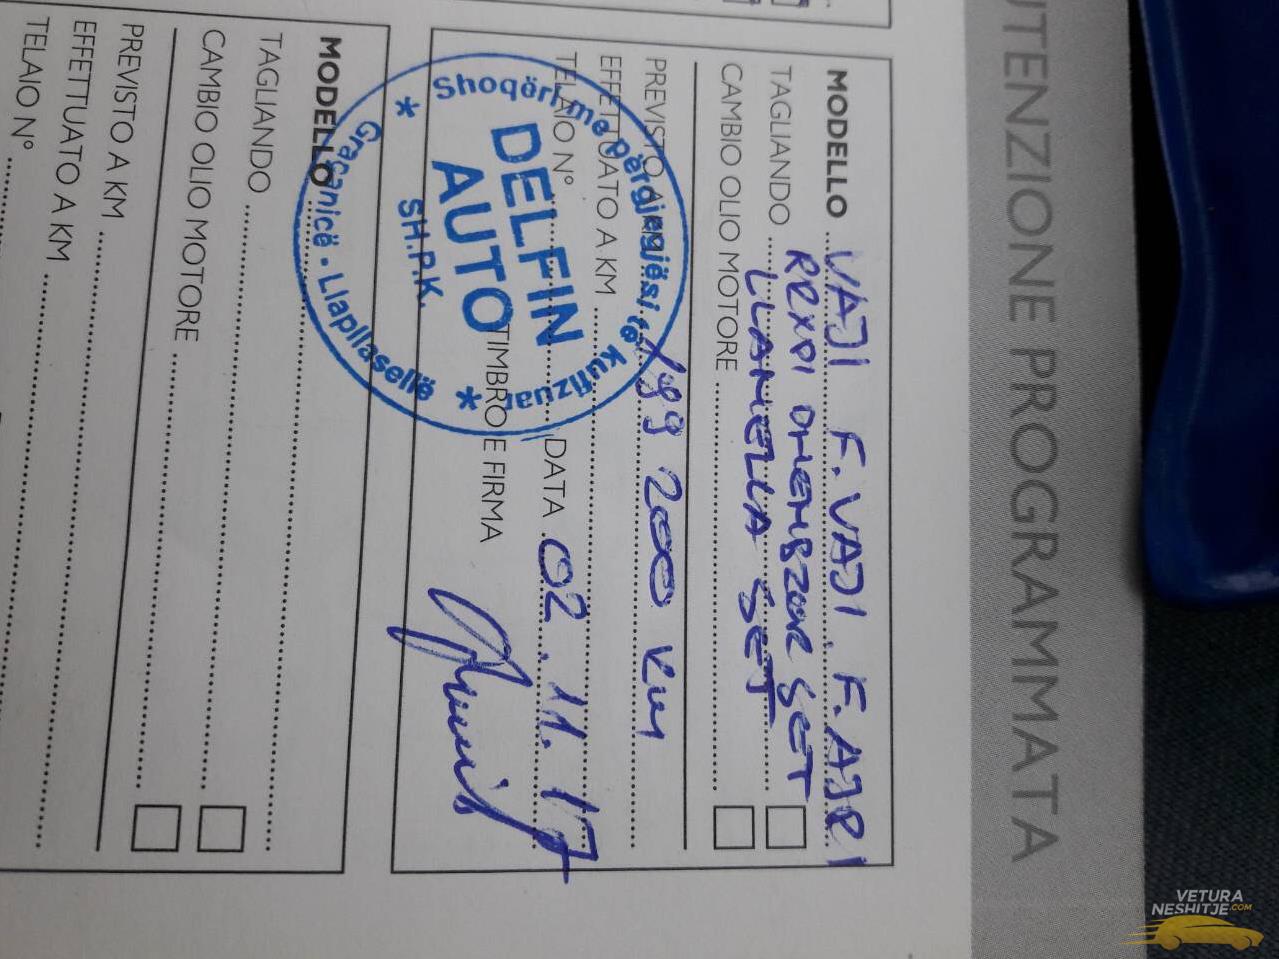 UTENZIONE PROGRAMMATA
MODELLO VAJI F.VAJI. F.AJRI
TAGLIANDO RRXPI DHEMBZOR SET
LLAMELLA SET
CAMBIO OLIO MOTORE
PREVISTO A KM 199 200 km
EFFETTUATO A KM
TELAIO N° DATA 02.11.17
TIMBRO E FIRMA
Shoqëri me përgjegjësi të kufizuar
DELFIN
AUTO
SH.P.K.
Graçanicë - Llapllasellë
MODELLO
TAGLIANDO
CAMBIO OLIO MOTORE
PREVISTO A KM
EFFETTUATO A KM
TELAIO N°
VETURA
NESHITJE.COM